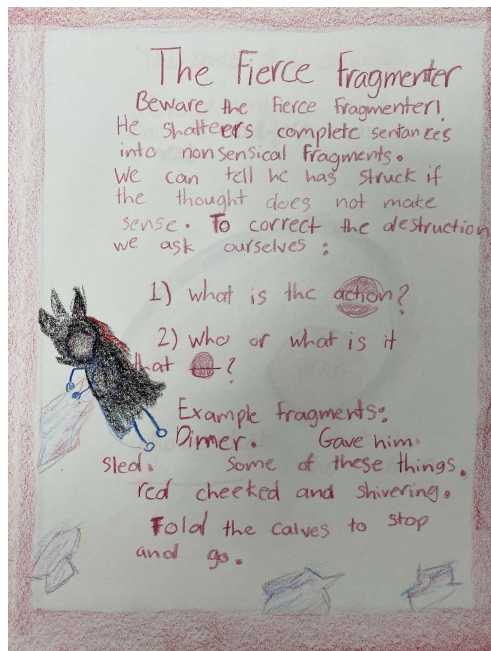 The Fierce Fragmenter
Beware the Fierce Fragmenter!
He shatteers complete sentances
into nonsensical fragments.
We can tell he has struck if
the thought does not make
sense. To correct the destruction
we ask ourselves:
1) what is the action?
2) who or what is it
that ?
Example fragments:
Dinner. Gave him
sled. Some of these things.
red cheeked and shivering.
Told the calves to stop
and go.